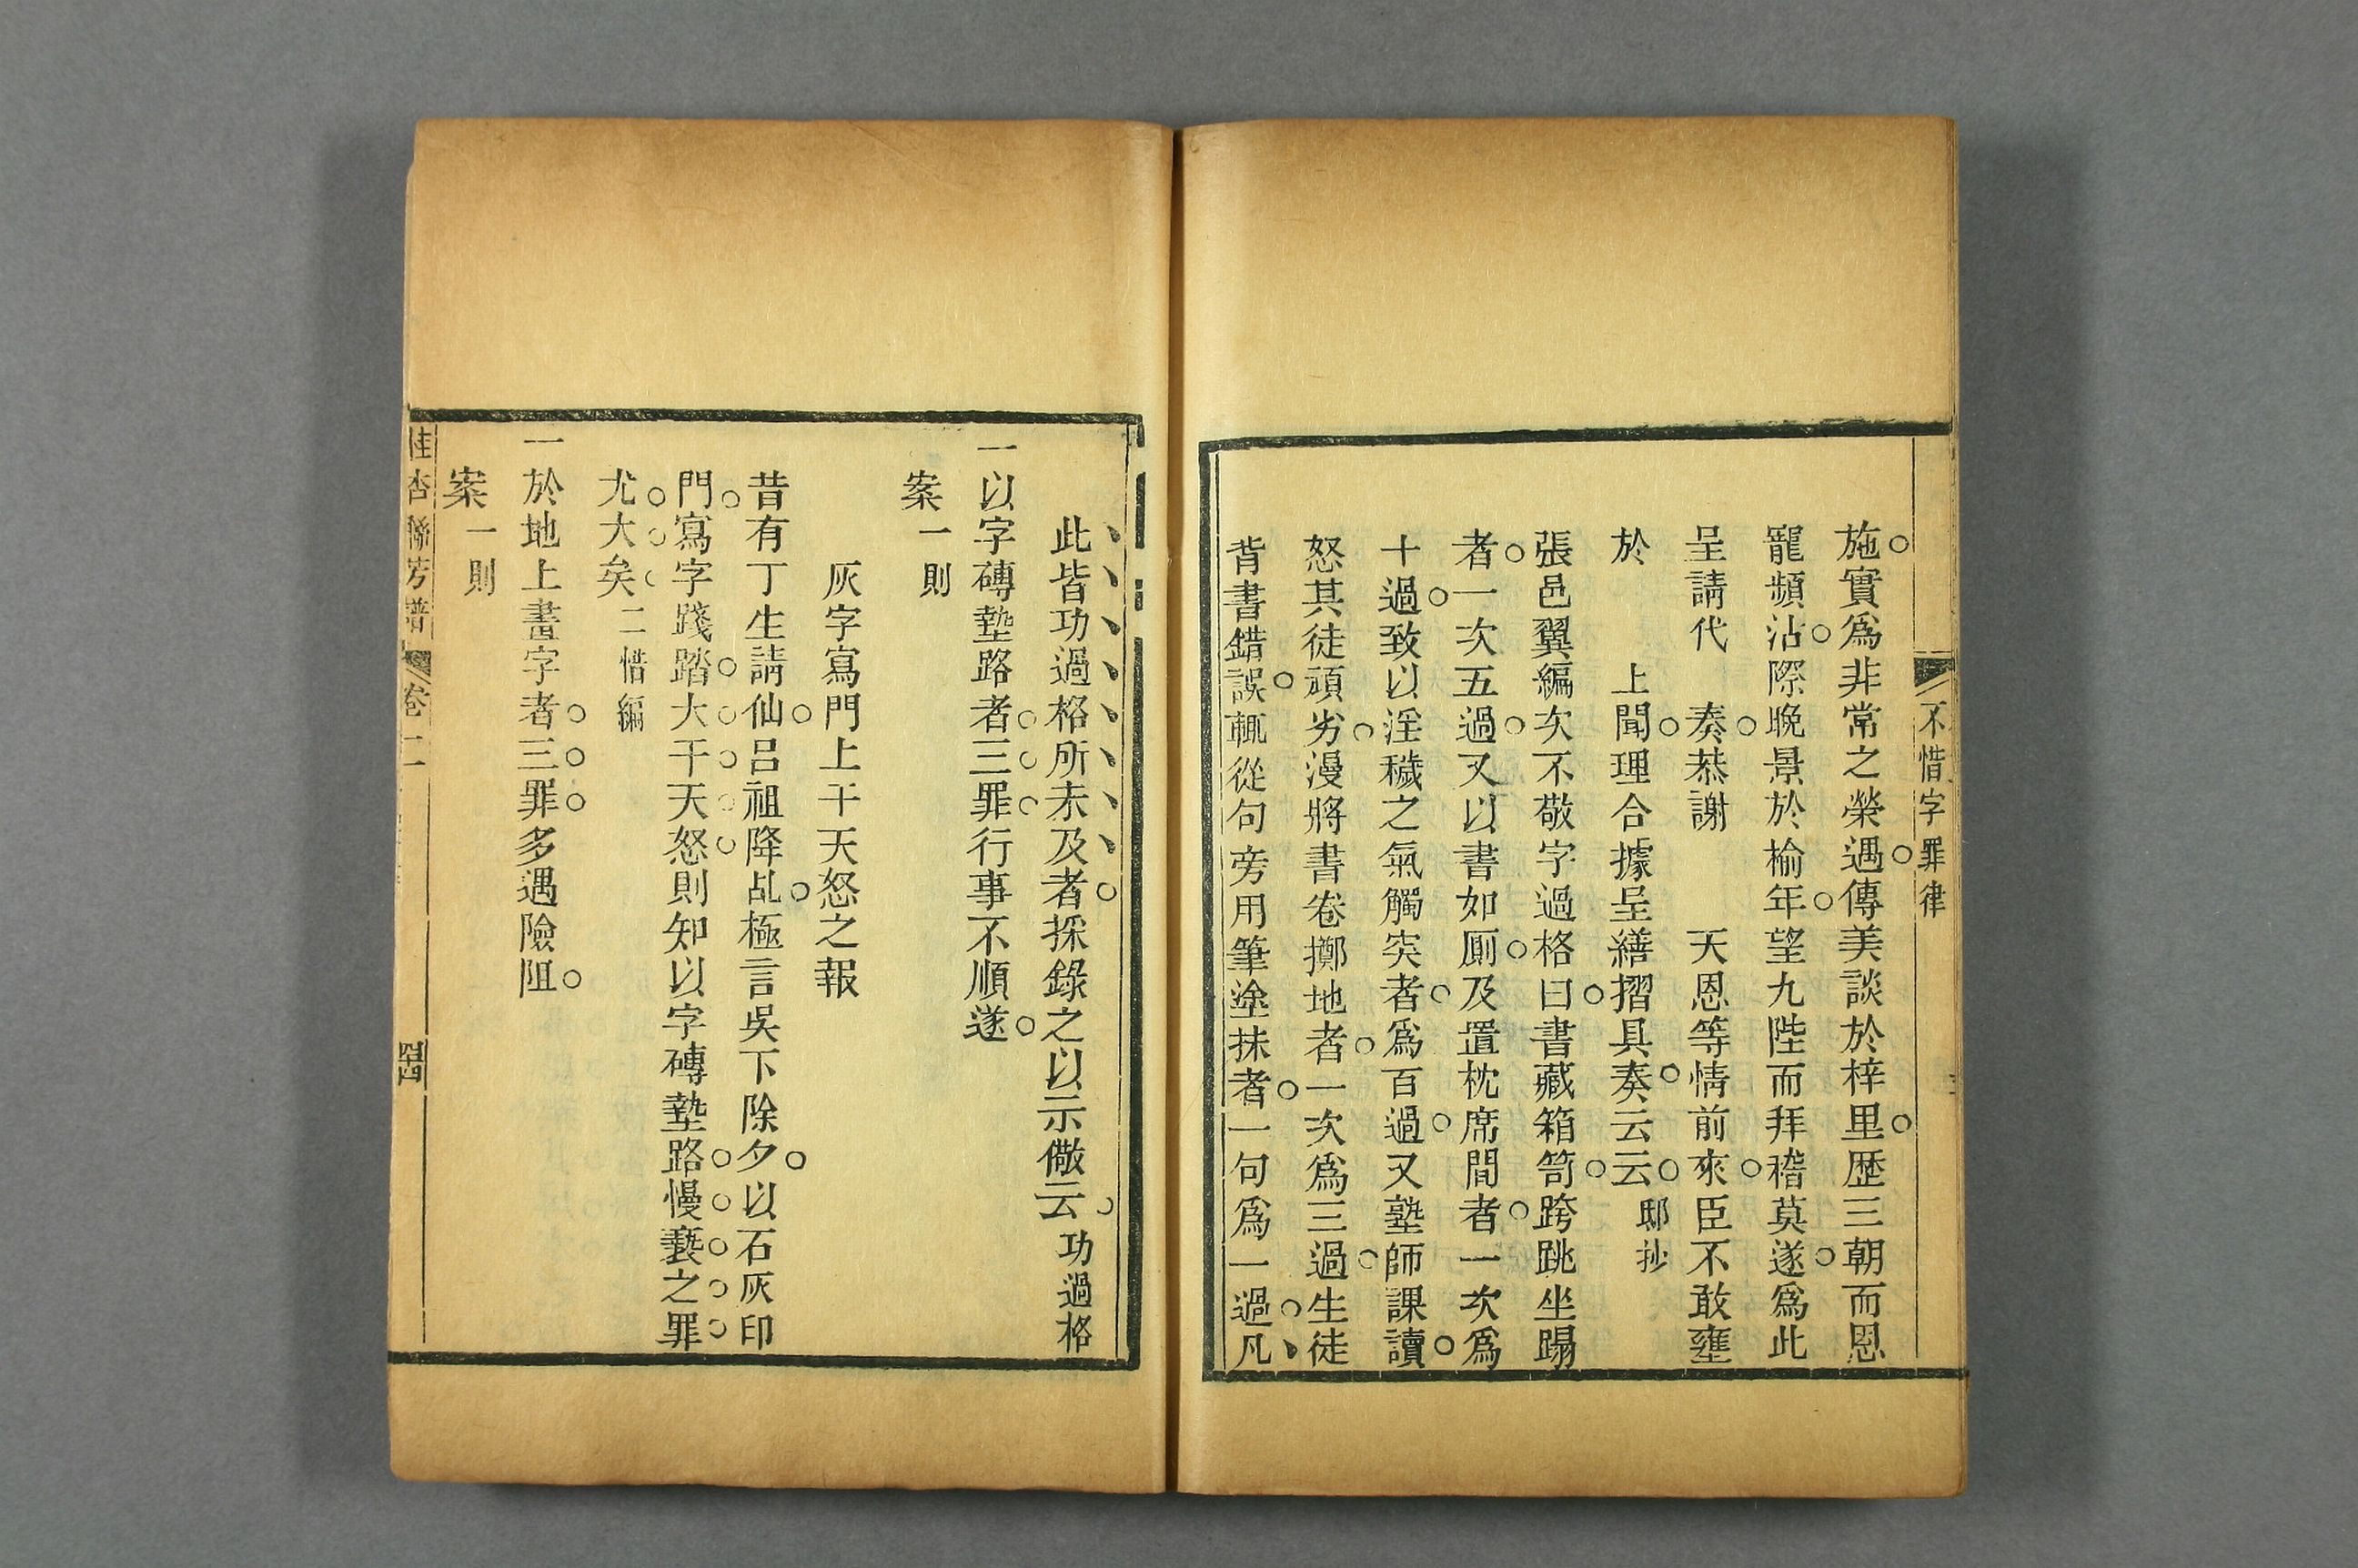 不惜字罪律
施實爲非常之榮遇傳美談於梓里歴三朝而恩
寵頻沾際晚景於榆年望九陛而拜稽莫遂爲此
呈請代　奏恭謝　天恩等情前來臣不敢壅
於　上聞理合據呈繕摺具奏云云邸抄
張邑翼編次不敬字過格曰書藏箱笥跨跳坐蹋
者一次五過又以書如厠及置枕席間者一次爲
十過致以淫穢之氣觸突者爲百過又塾師課讀
怒其徒頑劣漫將書卷擲地者一次爲三過生徒
背書錯誤輒從句旁用筆塗抹者一句爲一過凡
此皆功過格所未及者採錄之以示儆云功過格
一以字磚墊路者三罪行事不順遂
案一則
灰字寫門上干天怒之報
昔有丁生請仙呂祖降乩極言吳下除夕以石灰印
門寫字踐踏大干天怒則知以字磚墊路慢褻之罪
尤大矣二惜編
一於地上畫字者三罪多遇險阻
案一則
桂杏聯芳譜　卷二